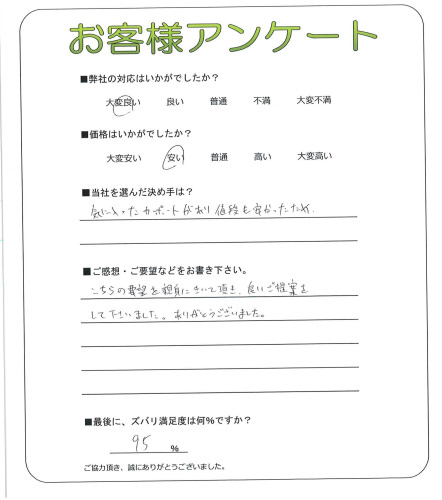 お客様アンケート
■弊社の対応はいかがでしたか？
大変良い 良い 普通 不満 大変不満
■価格はいかがでしたか？
大変安い 安い 普通 高い 大変高い
■当社を選んだ決め手は？
気に入ったカーポートがあり値段も安かったため.
■ご感想・ご要望などをお書き下さい。
こちらの要望を親身にきいて頂き、良いご提案を
して下さいました。ありがとうございました。
■最後に、ズバリ満足度は何％ですか？
95 %
ご協力頂き、誠にありがとうございました。